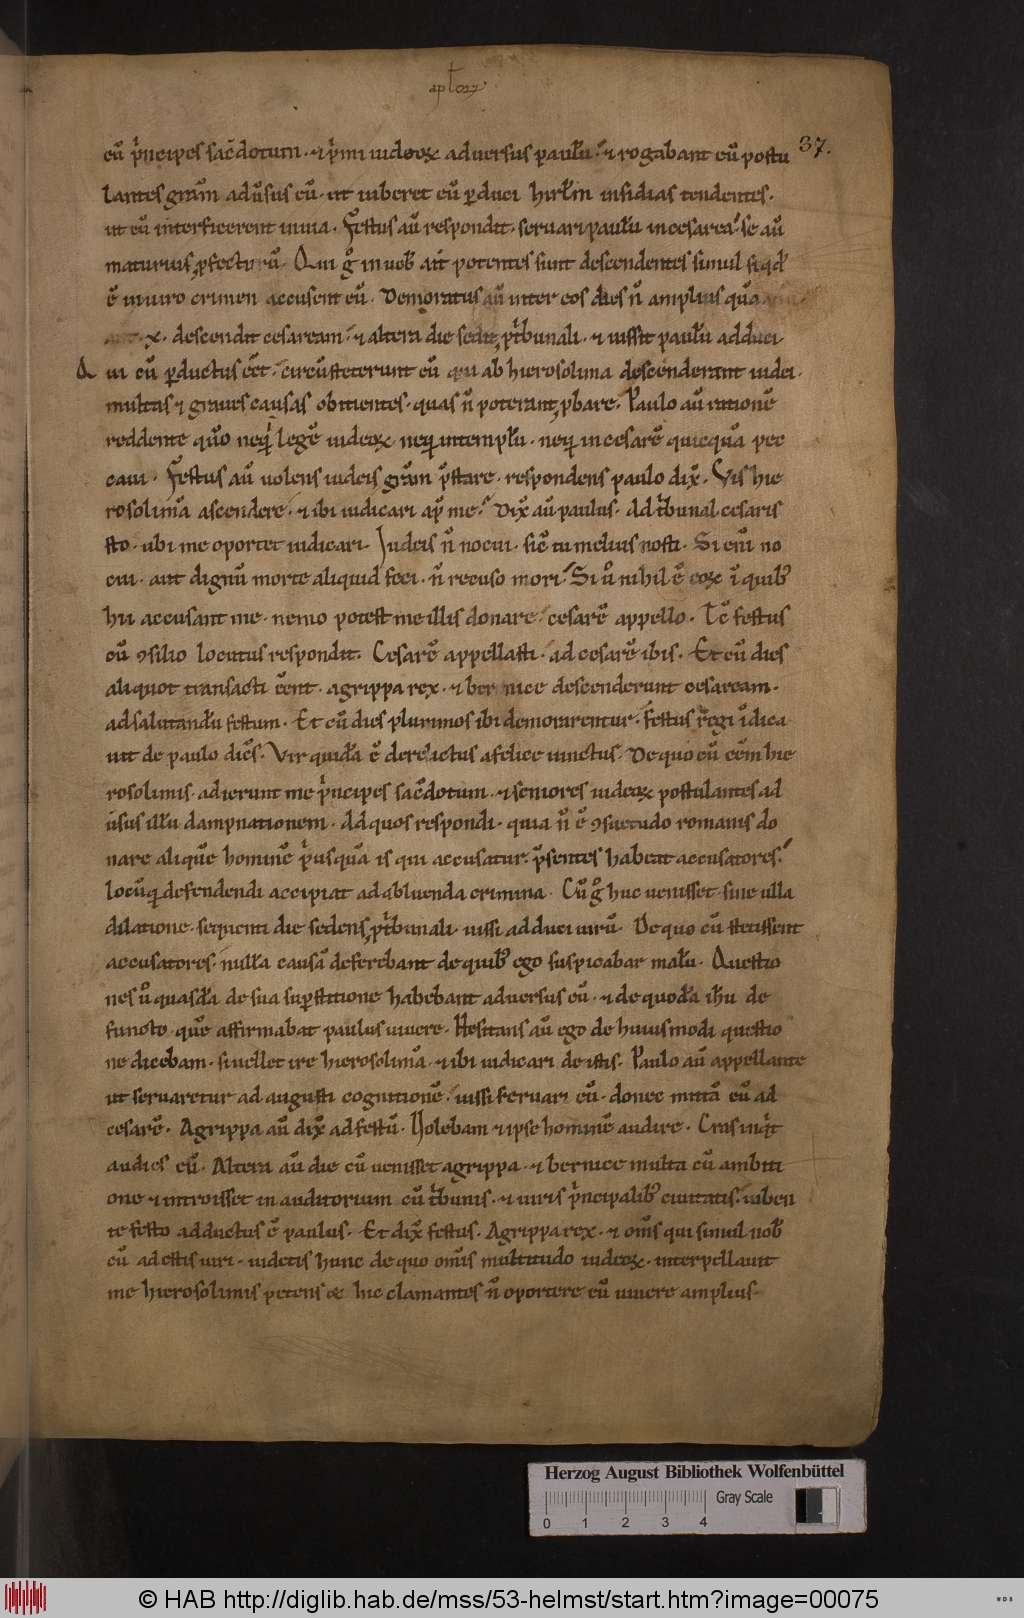 aplꝝ
37.
eū p̓ncipes sac̄dotum · ⁊ p̓mi iudeoꝝ aduersus paulū · ⁊ rogabant eū postu
lantes gr̄am adūsus eū · ut iuberet eū ꝑduci hirl̄m insidias tendentes ·
ut eū interficerent in uia · Festus aū respondit · seruari paulū in cesarea · se aū
maturius ꝓfecturū · Qui gͦ in uob̄ ait potentes sunt descendentes simul si qd̓
ē in uiro crimen accusent eū · Demoratus aū inter eos dies n̄ amplius quā
aut · x · descendit cesaream · ⁊ altera die sedit ꝓ t̓bunali · ⁊ iussit paulū adduci
Qui cū ꝑductus eēt · circūsteterunt eū qui ab hierosolima descenderant iudei ·
multas ⁊ graues causas obitientes · quas n̄ poterant ꝓbare · Paulo aū rationē
reddente qūo neq; ī legē iudeoꝝ neq; in templū · neq; in cesarē quicquā pec
caui · Festus aū uolens iudeis gr̄am p̄stare · respondens paulo dix̄ · Vis hie
rosolimā ascendere · ⁊ ibi iudicari ap̄ me · Dix̄ aū paulus · Ad t̓bunal cesaris
sto · ubi me oportet iudicari · Iudeis n̄ nocui · sic̄ tu melius nosti · Si enī no
cui · aut dignū morte aliquid feci · n̄ recuso mori · Si ū nihil ē eoꝝ ī quib;
hii accusant me · nemo potest me illis donare · cesarē appello · Tc̄ festus
cū ꝯsilio locutus respondit · Cesarē appellasti · ad cesarē ibis · Et cū dies
aliquot transacti eēnt · agrippa rex · ⁊ bernice descenderunt cesaream ·
ad salutandū festum · Et cū dies plurimos ibi demorarentur · festus regi īdica
uit de paulo dic̄s · Vir quidā ē derelictus a felice uinctus · De quo cū eēm hie
rosolimis · adierunt me p̓ncipes sac̄dotum · ⁊ seniores iudeoꝝ postulantes ad
ūsus illū dampnationem · Ad quos respondi · quia n̄ ē ꝯsuetudo romanis do
nare aliquē hominē p̓usquā is qui accusatur · p̄sentes habeat accusatores ·
locūq; defendendi accipiat ad abluenda crimina · Cū gͦ huc uenisset · sine ulla
dilatione · sequenti die sedens ꝓ t̓bunali · iussi adduci uirū · De quo cū stetissent
accusatores · nullā causā deferebant de quib; ego suspicabar malū · Questio
nes ū quasdā de sua suꝑstitione habebant aduersus eū · ⁊ de quodā ih̄u de
functo · quē affirmabat paulus uiuere · Hesitans aū ego de huiusmodi questio
ne dicebam · si uellet ire hierosolimā · ⁊ ibi iudicari de istis · Paulo aū appellante
ut seruaretur ad augusti cognitionē · iussi seruari eū · donec mittā eū ad
cesarē · Agrippa aū dix̄ ad festū · Uolebam ⁊ ipse hominē audire · Cras inq̓t
audies eū · Altera aū die cū uenisset agrippa · ⁊ bernice multa cū ambiti
one ⁊ introisset in auditorium cū t̓bunis · ⁊ uiris p̓ncipalib; ciuitatis · iuben
te festo adductus ē paulus · Et dix̄ festus · Agrippa rex · ⁊ om̄s qui simul nob̄
cū adestis uiri · uidetis hunc de quo om̄is multitudo iudeoꝝ · interpellauit
me hierosolimis petens & hic clamantes n̄ oportere eū uiuere amplius ·
Herzog August Bibliothek Wolfenbüttel
Gray Scale
0 1 2 3 4
© HAB http://diglib.hab.de/mss/53-helmst/start.htm?image=00075